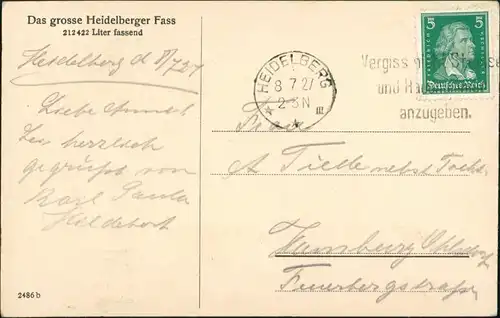 Das grosse Heidelberger Fass
212422 Liter fassend
Heidelberg d 8/7 27
HEIDELBERG
8 7 27
2-3 N
III
5 5
FRIEDRICH SCHILLER
Deutsches Reich
Vergiss
und
anzugeben.
Liebe
Sei herzlich
gegrüßt von
Karl Paula
Hildebert
Frau
A Tielle nebst Tocht.
Hamburg Ohlsdorf
Feuerbergstraße
2486 b